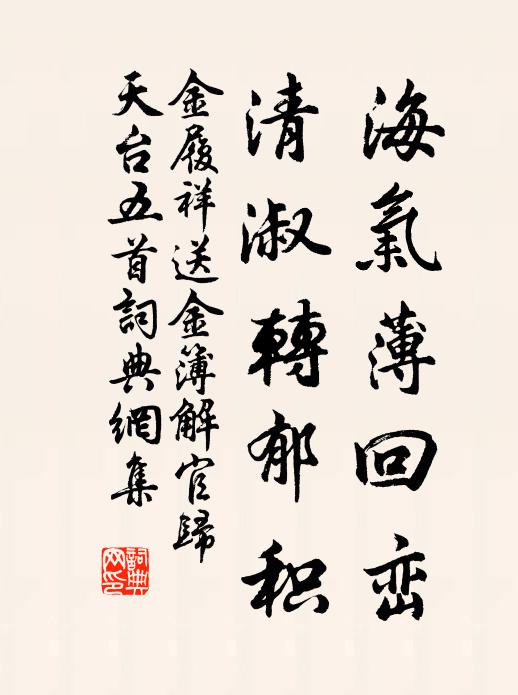 海氣薄回峦
清淑轉郁积
金履祥送金簿解官歸
天台五首詞典網集
詞典网印